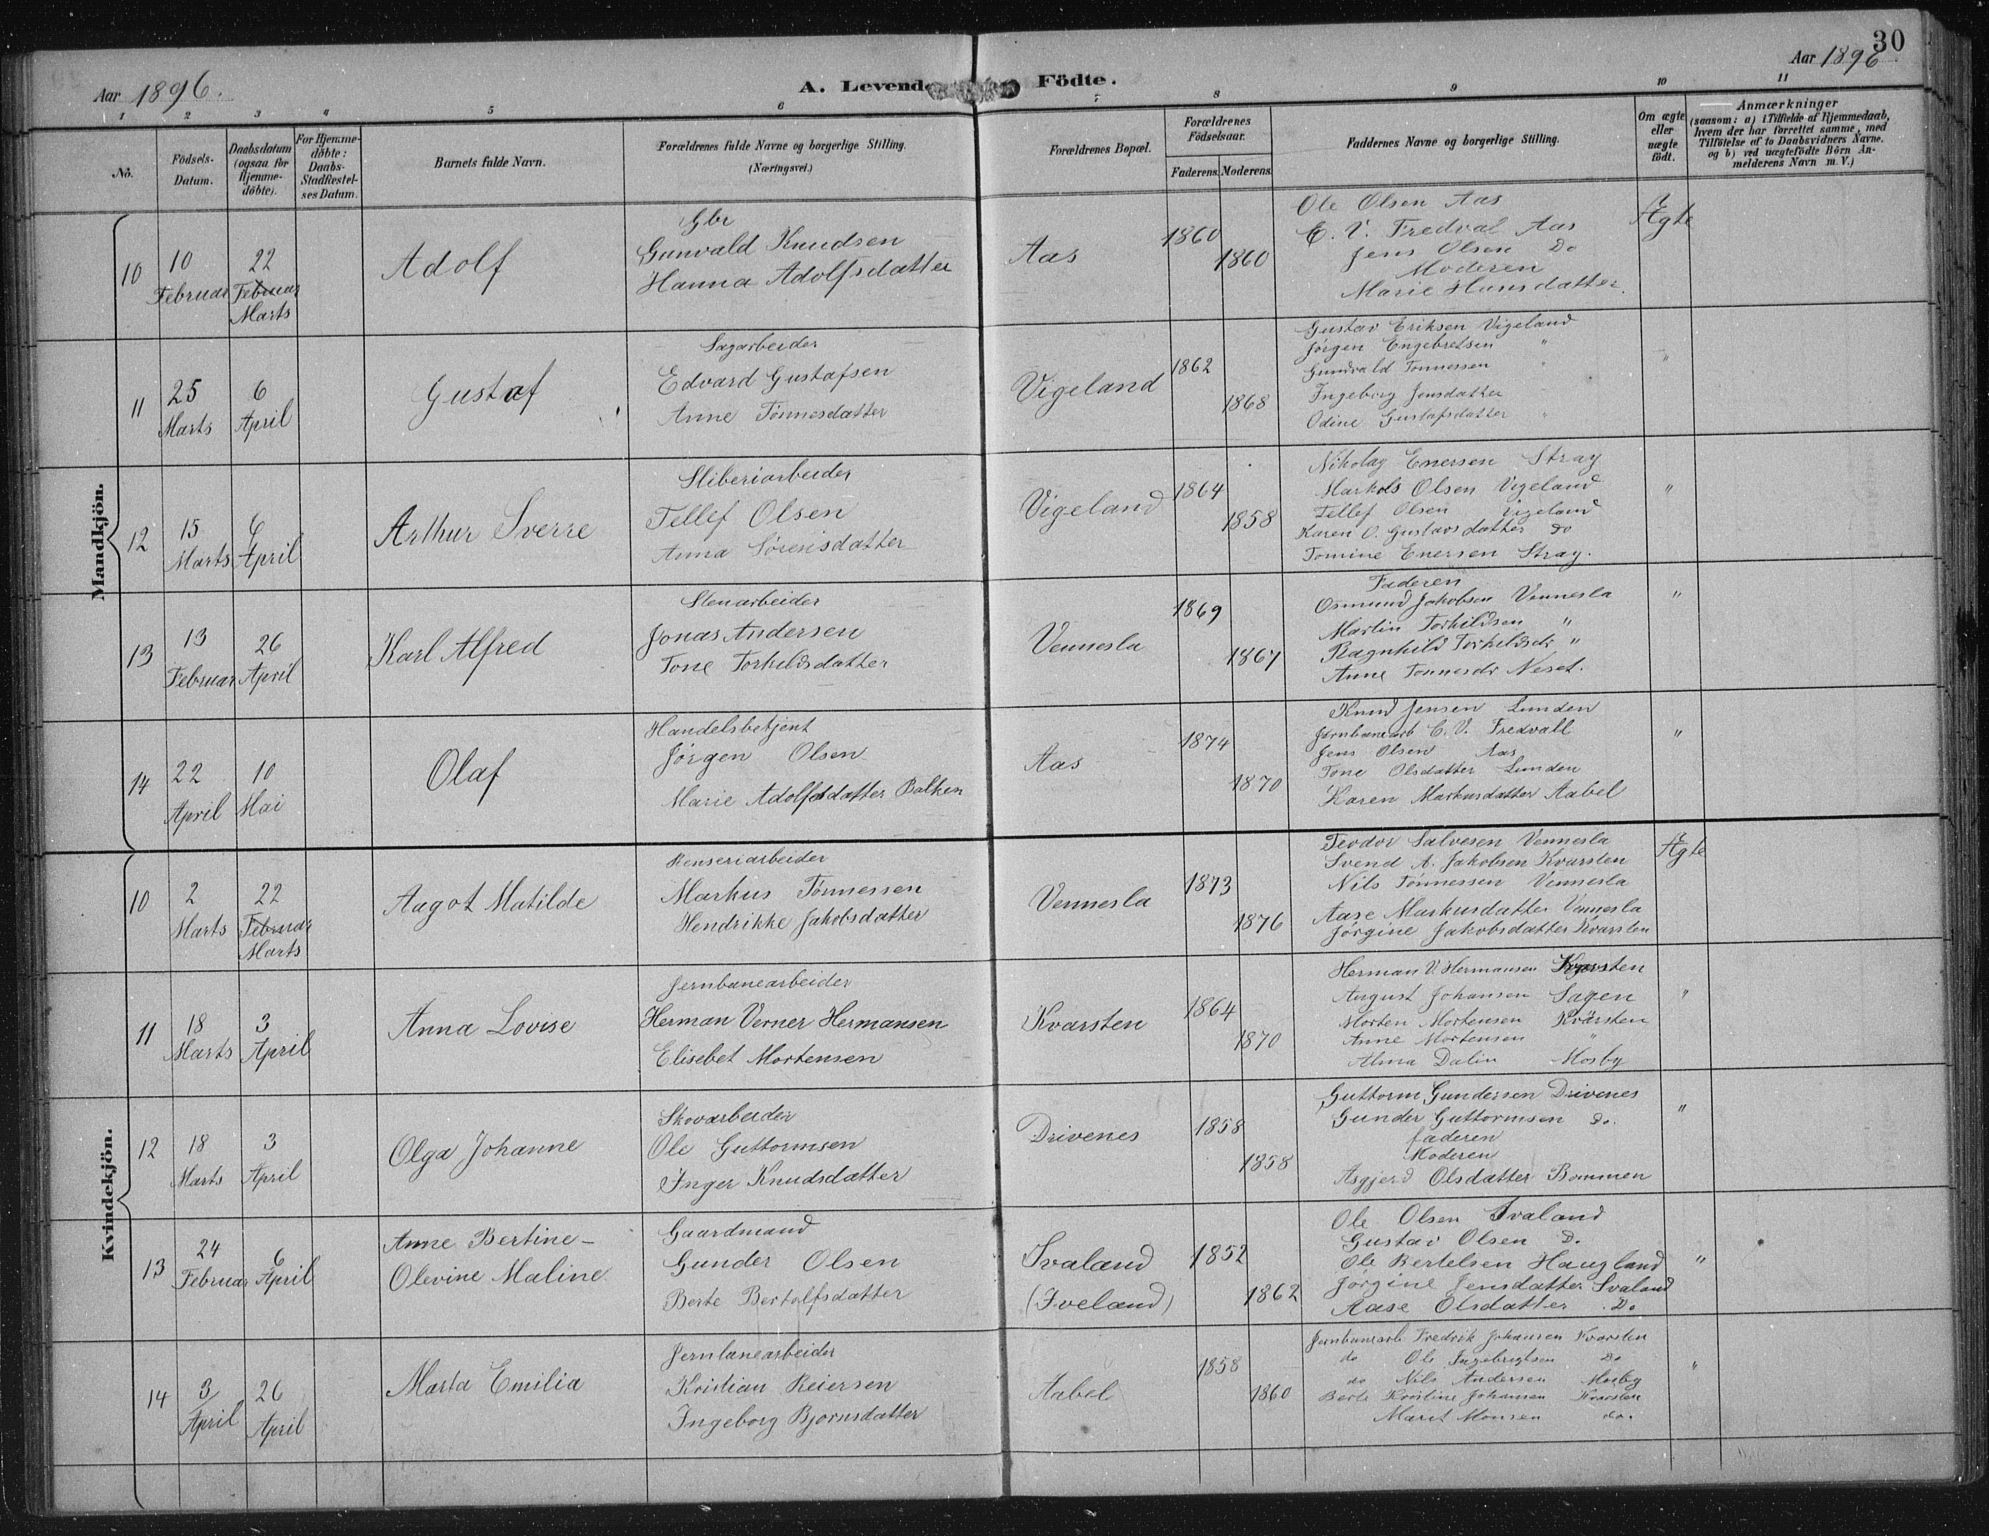 30
Aar 1896.
A. Levende Födte.
Aar 1896.
1 2 3 4 5 6 7 8 9 10 11
No.
Födsels-Datum.
Daabsdatum (ogsaa for Hjemme-döbte).
For Hjemme-döbte: Daabs-Stadfæstel-ses Datum.
Barnets fulde Navn.
Forældrenes fulde Navne og borgerlige Stilling. (Næringsvei.)
Forældrenes Bopæl.
Forældrenes Födselsaar.
Faderens. Moderens.
Faddernes Navne og borgerlige Stilling.
Om ægte eller uægte födt.
Anmærkninger
(saasom: a) i Tilfælde af Hjemmedaab, hvem der har forrettet samme, med Tilföielse af to Daabsvidners Navne. og b) ved uægtefödte Börn An-melderens Navn m. V.)
Mandkjön.
10
10 Februar
22 Februar Marts
Adolf
Gbr
Gunvald Knudsen
Hanna Adolfsdatter
Aas
1860
1860
Ole Olsen Aas
E. V. Fredval Aas
Jens Olsen Do
Moderen
Marie Hansdatter.
Ægte
11
25 Marts
6 April
Gustaf
Sagarbeider
Edvard Gustafsen
Anne Tønnesdatter
Vigeland
1862
1868
Gustav Eriksen Vigeland
Jørgen Engebretsen "
Gundvald Tønnessen "
Ingeborg Jensdatter
Odine Gustafsdatter "
"
12
15 Marts
6 April
Arthur Sverre
Sliberiarbeider
Tellef Olsen
Anna Sørensdatter
Vigeland
1864
1858
Nikolay Enersen Stray
Markus Olsen Vigeland
Tellef Olsen Vigeland
Karen O. Gustavsdatter Do
Tomine Enersen Stray.
"
13
13 Februar
26 April
Karl Alfred
Stenarbeider
Jonas Andersen
Tone Torkildsdatter
Vennesla
1869
1867
Faderen
Osmund Jakobsen Vennesla
Martin Torkildsen "
Ragnhild Torkildsdr "
Anne Tønnesdr Neset.
"
14
22 April
10 Mai
Olaf
Handelsbetjent
Jørgen Olsen
Marie Adolfsdatter Balken
Aas
1874
1870
Knud Jensen Lunden
Jernbanearb E. V. Fredvall
Jens Olsen Aas
Tone Olsdatter Lunden
Karen Markusdatter Aabel
"
Kvindekjön.
10
2 Marts
22 Februar Marts
Aagot Matilde
Renseriarbeider
Markus Tønnessen
Hendrikke Jakobsdatter
Vennesla
1873
1876
Teodor Salvesen Vennesla
Svend A. Jakobsen Kvarsten
Nils Tønnessen Vennesla
Aase Markusdatter Vennesla
Jørgine Jakobsdatter Kvarsten
Ægte
11
18 Marts
3 April
Anna Lovise
Jernbanearbeider
Herman Verner Hermansen
Elisebet Mortensen
Kvarsten
1864
1870
Herman V. Hermansen Kvarsten
August Johansen Sagen
Morten Mortensen Kvarsten
Anne Mortensen "
Alma Dalin Mosby
"
12
18 Marts
3 April
Olga Johanne
Skovarbeider
Ole Guttormsen
Inger Knudsdatter
Drivenes
1858
1858
Guttorm Gundersen Drivenes
Gunder Guttormsen Do.
faderen
Moderen
Asgjerd Olsdatter Bommen
"
13
24 Februar
6 April
Anne Bertine-
Olevine Maline
Gaardmand
Gunder Olsen
Berte Bertolfsdatter
Svaland
(Iveland)
1852
1862
Ole Olsen Svaland
Gustav Olsen D.
Ole Bertelsen Haugland
Jørgine Jensdatter Svaland
Aase Olsdatter Do
"
14
3 April
26 April
Marta Emilia
Jernbanearbeider
Kristian Reiersen
Ingeborg Bjornsdatter
Aabel
1858
1860
Jernbanearb Fredrik Johansen Kvarsten
do Ole Ingebrigtsen Do
do Nils Andersen Mosby
Berte Kristine Johansen Kvarsten
Marit Monsen do.
"